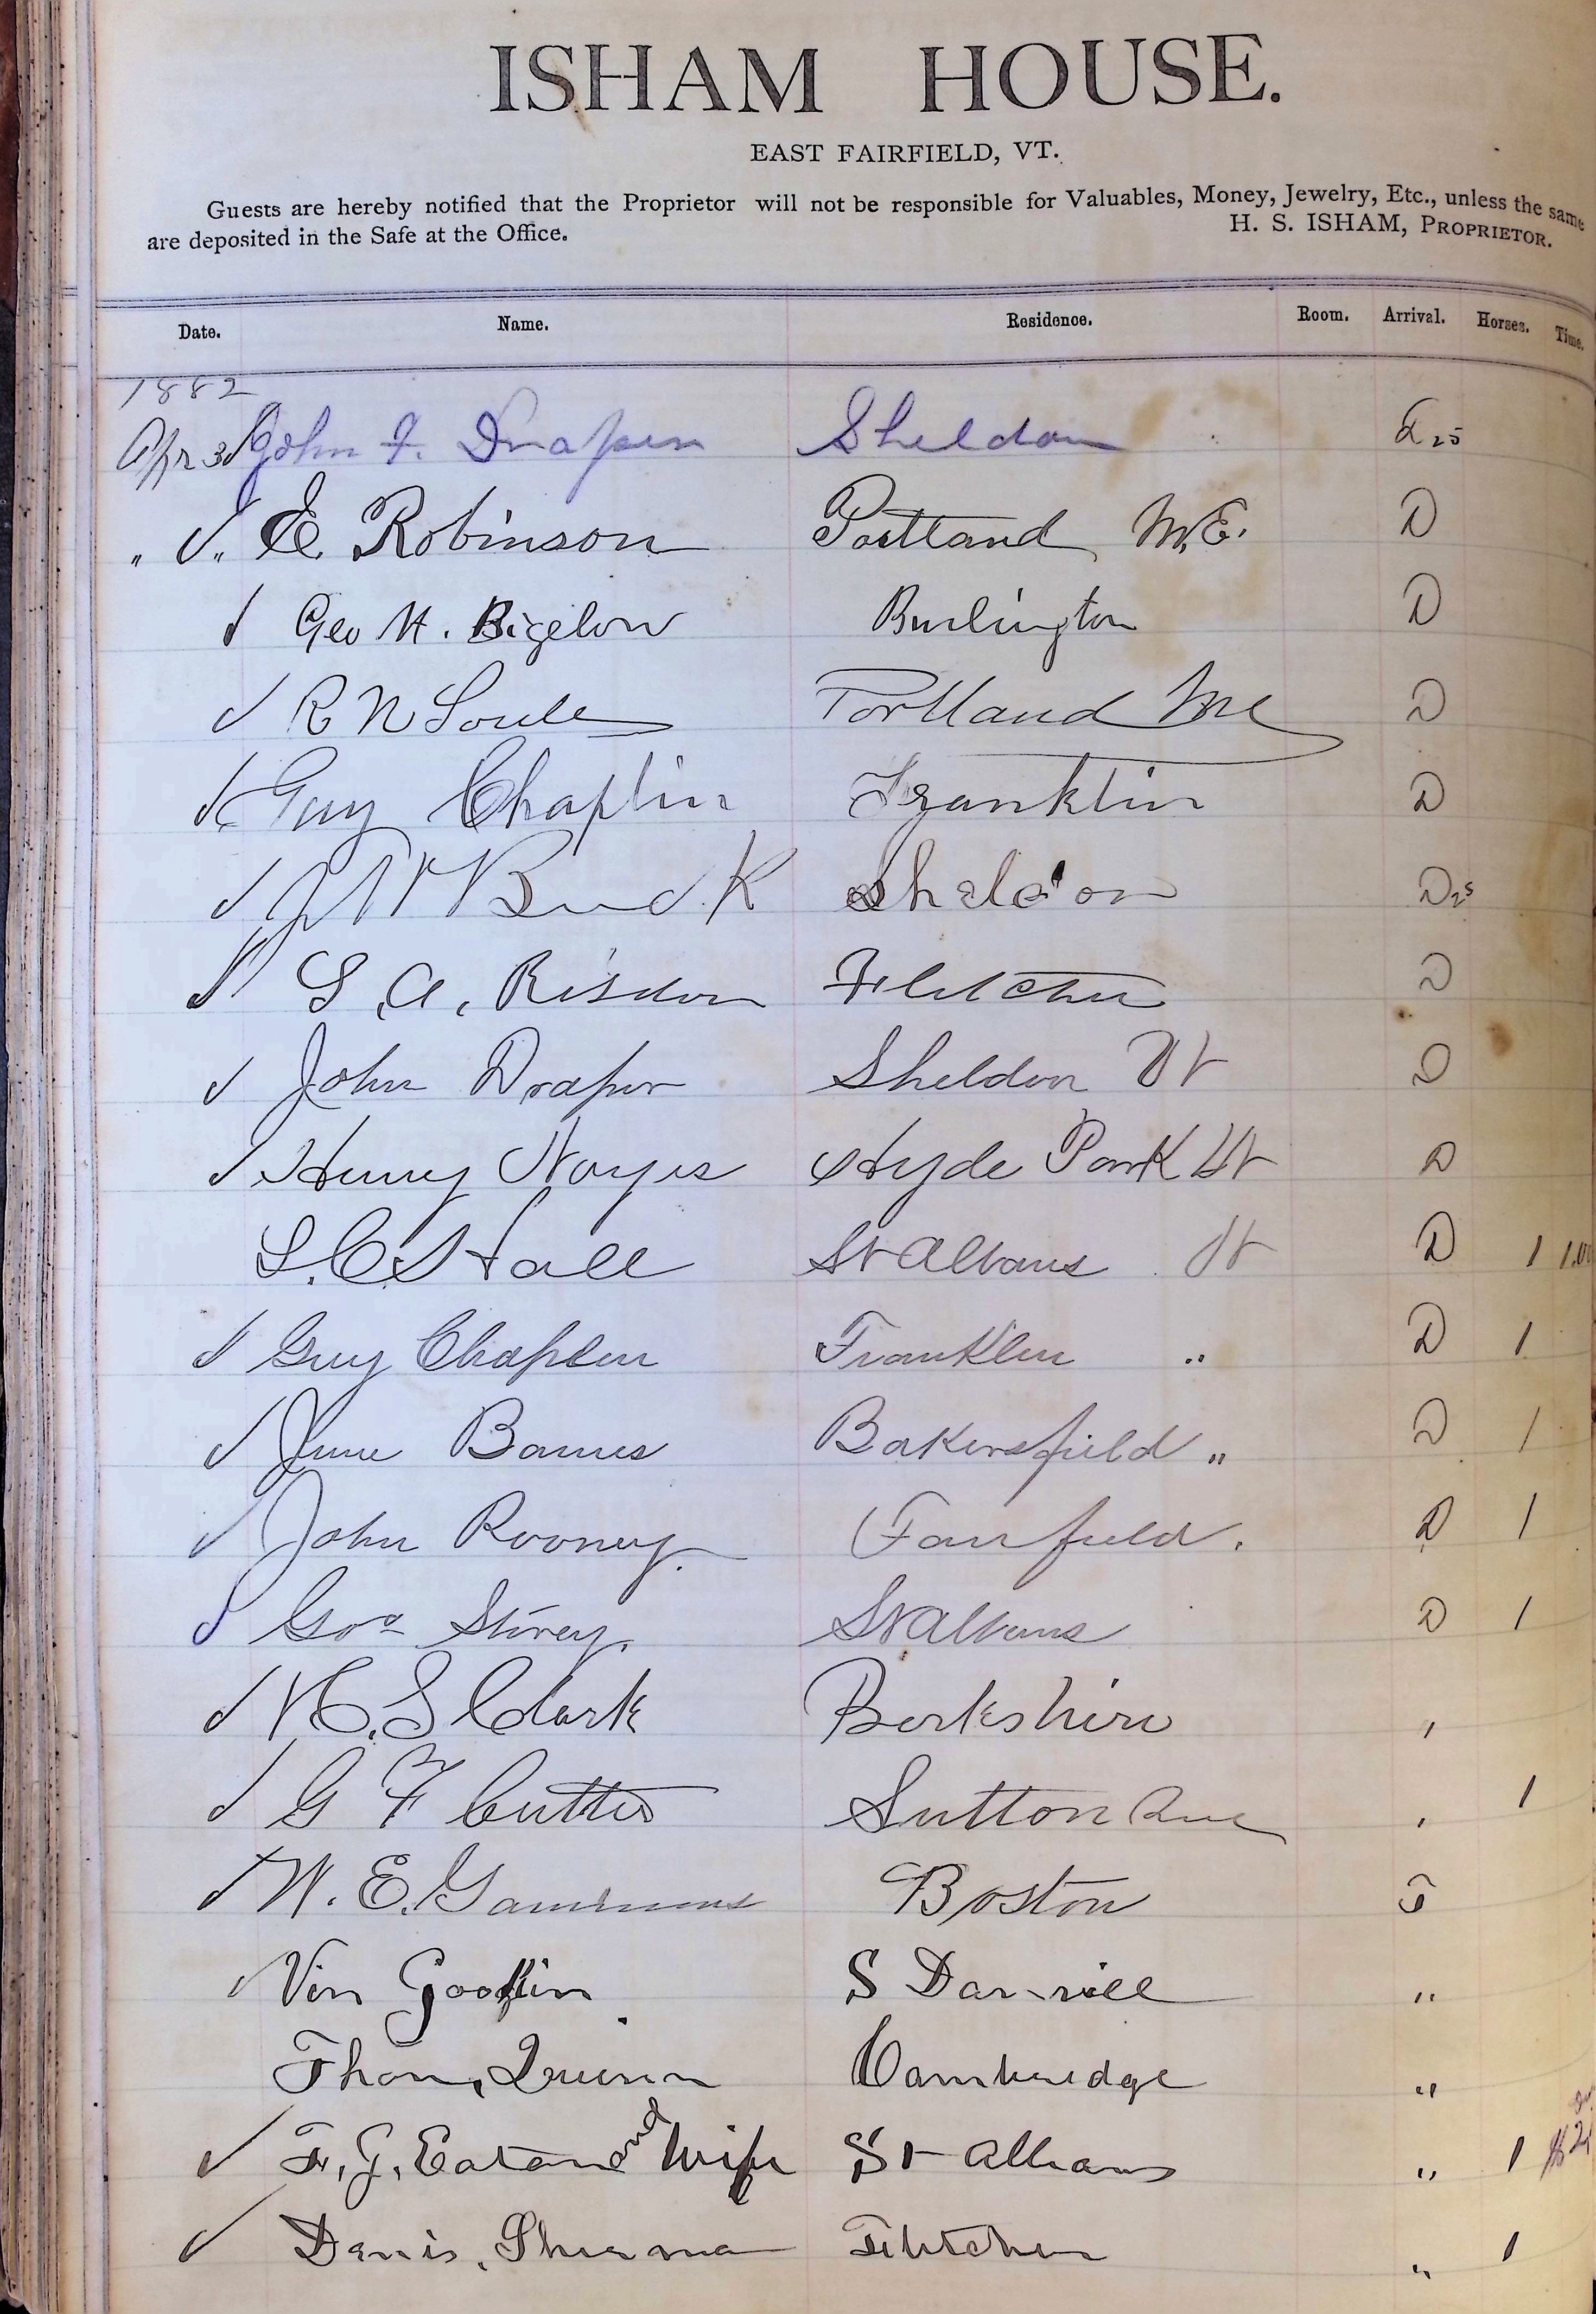 ISHAM HOUSE.
EAST FAIRFIELD, VT.
Guests are hereby notified that the Proprietor will not be responsible for Valuables, Money, Jewelry, Etc., unless the same
are deposited in the Safe at the Office. H. S. ISHAM, PROPRIETOR.
Date. Name. Residence. Room. Arrival. Horses. Time.
1882
Apr 3 John F. Draper Sheldon 25
" " E Robinson Portland, M.E. D
Geo H. Bigelow Burlington D
R N Soule Portland Me D
Guy Chaplin Franklin D
Buck Sheldon D 25
S. A. Risdon Fletcher D
John Draper Sheldon Vt D
Henry Noyes Hyde Park Vt D
S. C. Hall St Albans Vt D 1
Guy Chaplin Franklin " D 1
June Barnes Bakersfield " D 1
John Rooney. Fairfield. D 1
Geo Storey. St Albans D 1
H. S Clark Berkshire "
G F Cutter Sutton Que " 1
W. E. Gammons Boston T
Vin Goodin S Danville "
Thom, Quinn Cambridge "
F. J. Eaton and Wife St Albans " 1
Denis, Sherman Fletcher " 1